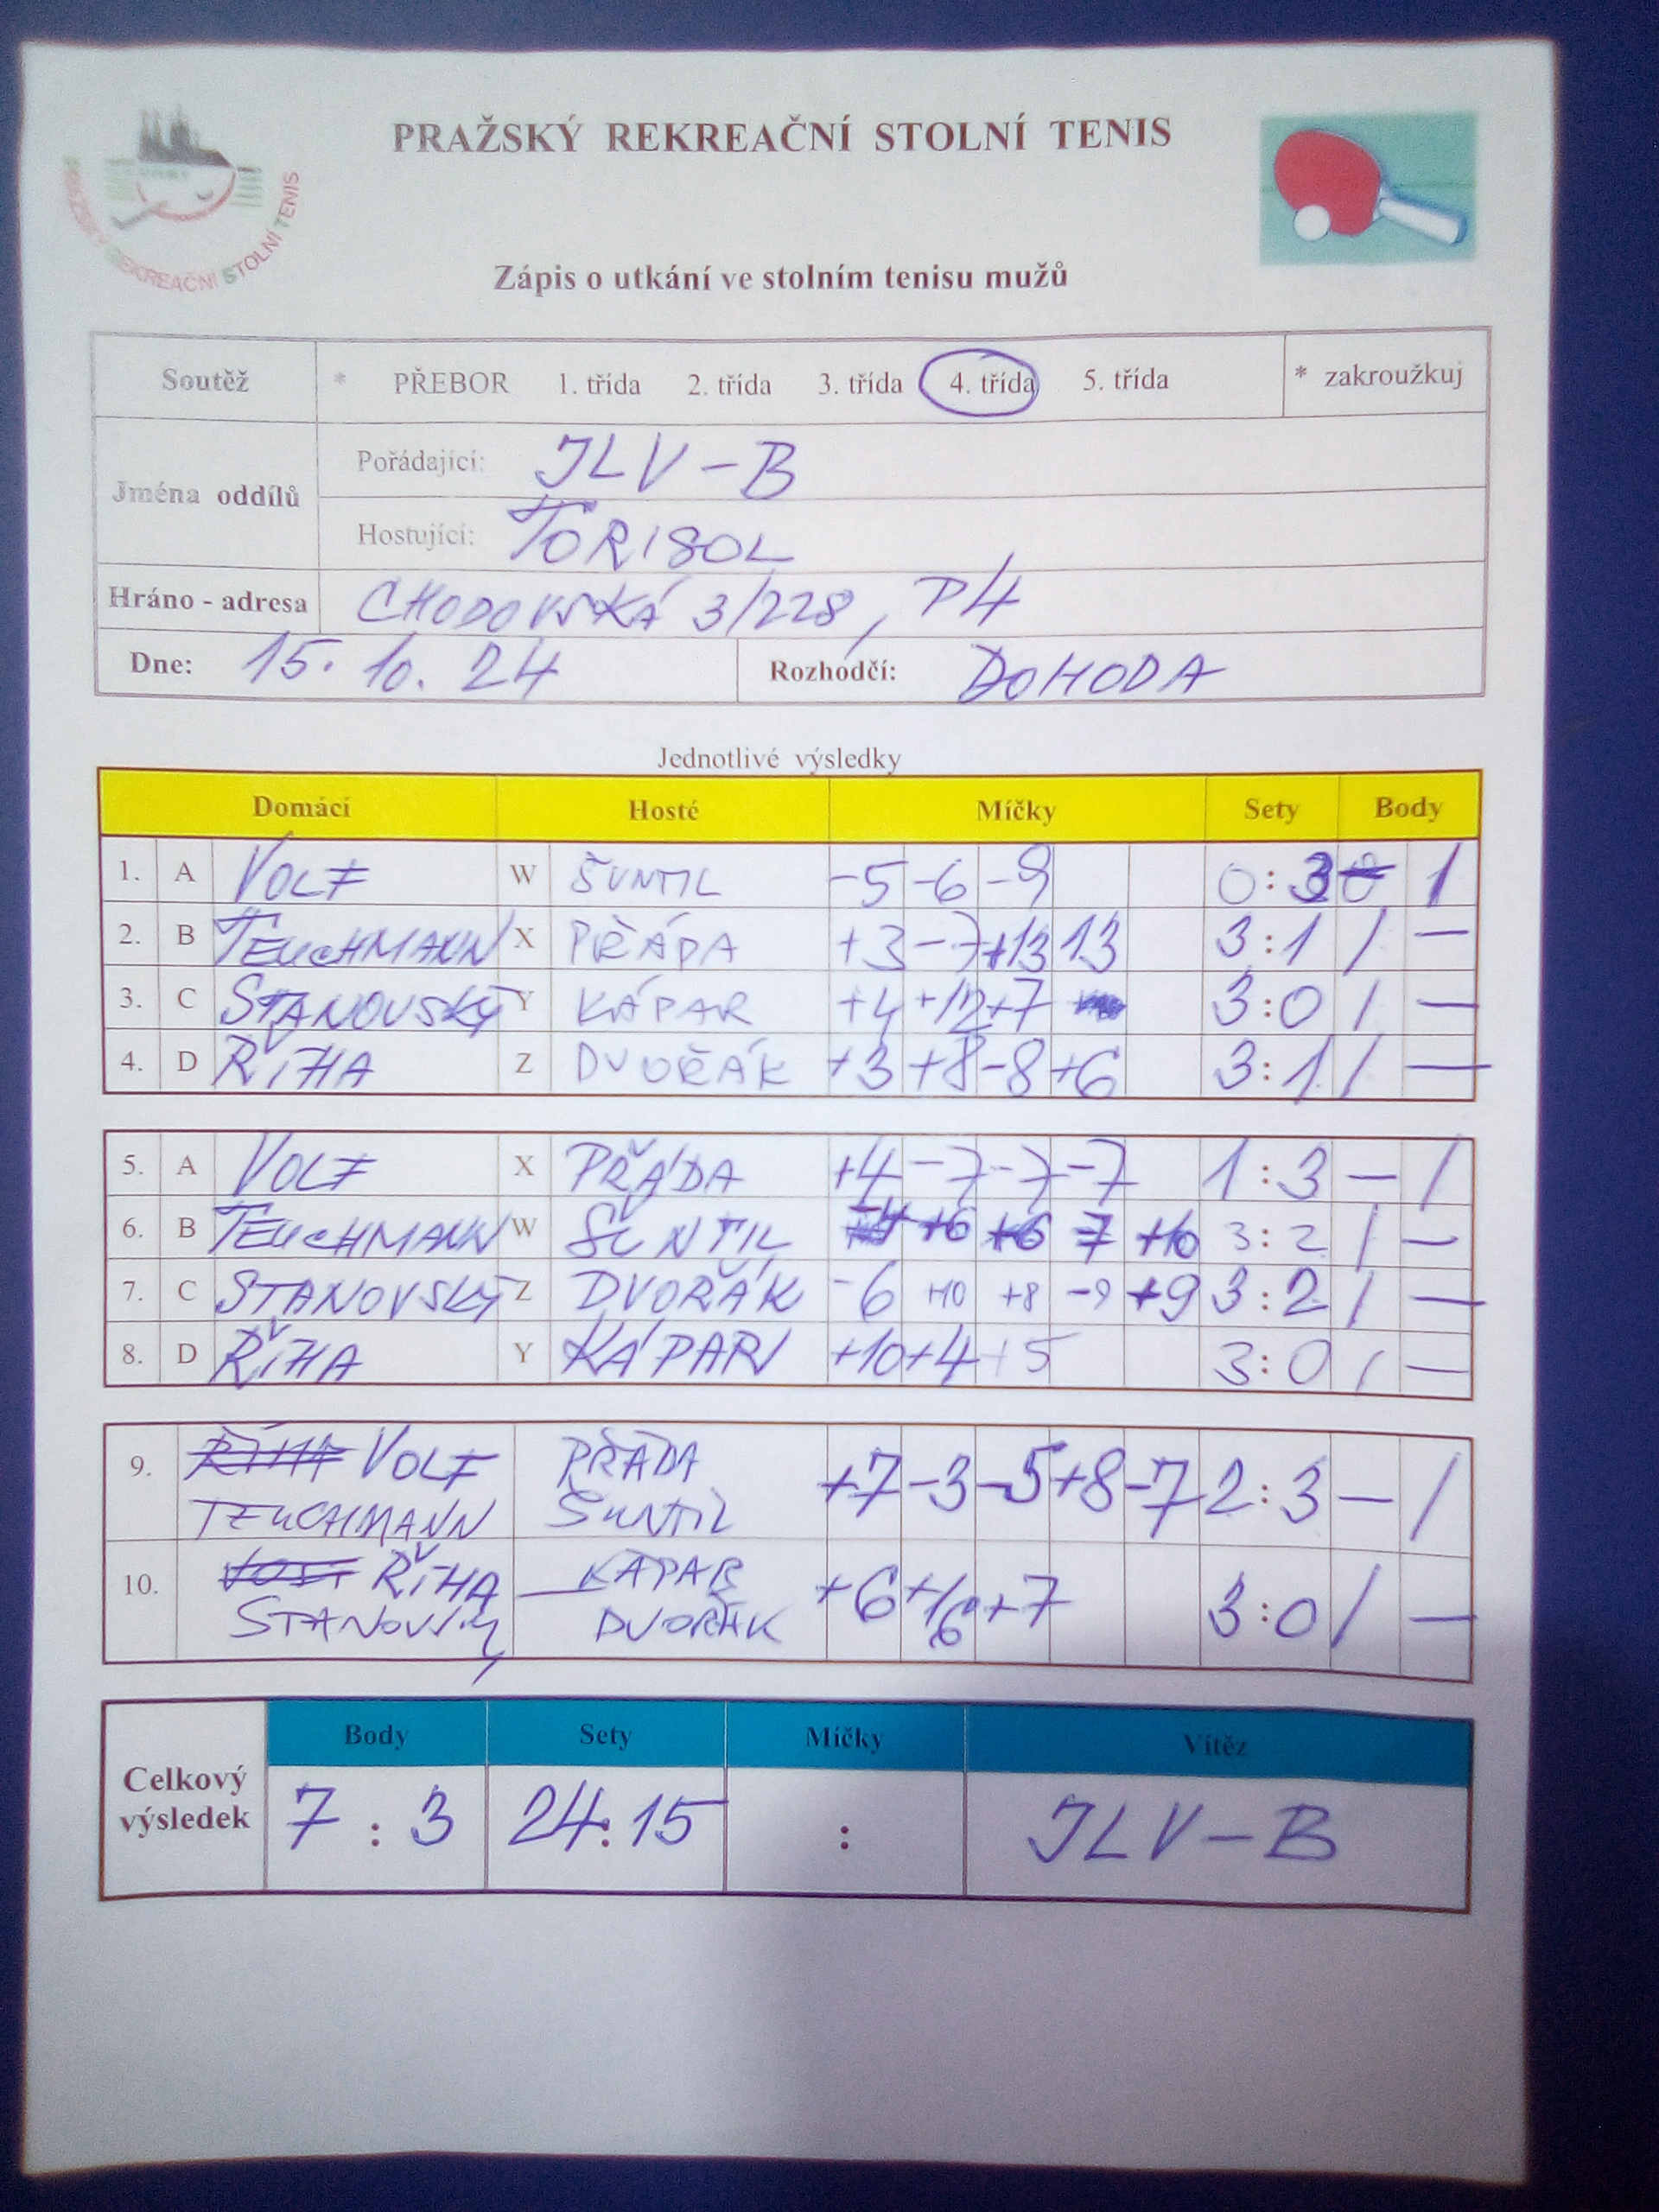 PRAŽSKÝ REKREAČNÍ STOLNÍ TENIS
PRAŽSKÝ REKREAČNÍ STOLNÍ TENIS
Zápis o utkání ve stolním tenisu mužů
Soutěž * PŘEBOR 1. třída 2. třída 3. třída 4. třída 5. třída * zakroužkuj
Jména oddílů
Pořádající: JLV-B
Hostující: TORISOL
Hráno - adresa CHODOVSKÁ 3/228, P4
Dne: 15. 10. 24 Rozhodčí: DOHODA
Jednotlivé výsledky
Domácí Hosté Míčky Sety Body
1. A VOLF W ŠUNTIL -5 -6 -9 0:3 1
2. B TEUCHMANN X PŘÁDA +3 -7 +13 13 3:1 1 -
3. C STANOVSKÝ Y KÁPAR +4 +12 +7 3:0 1 -
4. D ŘÍHA Z DVOŘÁK +3 +8 -8 +6 3:1 1 -
5. A VOLF X PŘÁDA +4 -7 -7 -7 1:3 - 1
6. B TEUCHMANN W ŠUNTIL +6 +6 +10 3:2 1 -
7. C STANOVSKÝ Z DVOŘÁK -6 +10 +8 -9 +9 3:2 1 -
8. D ŘÍHA Y KÁPAR +10 +4 +5 3:0 1 -
9. ŘÍHA VOLF PŘÁDA +7 -3 -5 +8 -7 2:3 - 1
TEUCHMANN ŠUNTIL
10. VOLF ŘÍHA KÁPAR +6 +16 +7 3:0 1 -
STANOVSKÝ DVOŘÁK
Celkový výsledek
Body Sety Míčky Vítěz
7 : 3 24:15 : JLV-B